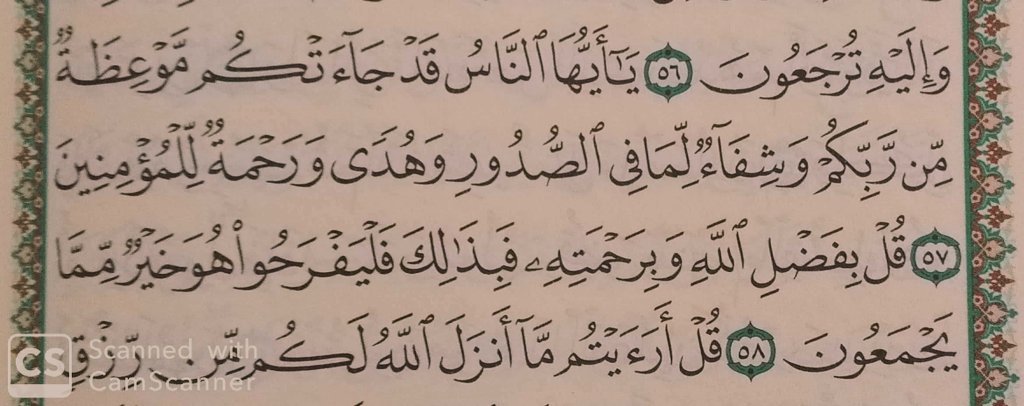 وَإِلَيْهِ تُرْجَعُونَ ٥٦ يَـٰٓأَيُّهَا ٱلنَّاسُ قَدْ جَآءَتْكُم مَّوْعِظَةٌ
مِّن رَّبِّكُمْ وَشِفَآءٌ لِّمَا فِى ٱلصُّدُورِ وَهُدًى وَرَحْمَةٌ لِّلْمُؤْمِنِينَ
٥٧ قُلْ بِفَضْلِ ٱللَّهِ وَبِرَحْمَتِهِۦ فَبِذَٰلِكَ فَلْيَفْرَحُوا۟ هُوَ خَيْرٌ مِّمَّا
يَجْمَعُونَ ٥٨ قُلْ أَرَءَيْتُم مَّآ أَنزَلَ ٱللَّهُ لَكُم مِّن رِّزْقٍ
CS Scanned with
CamScanner